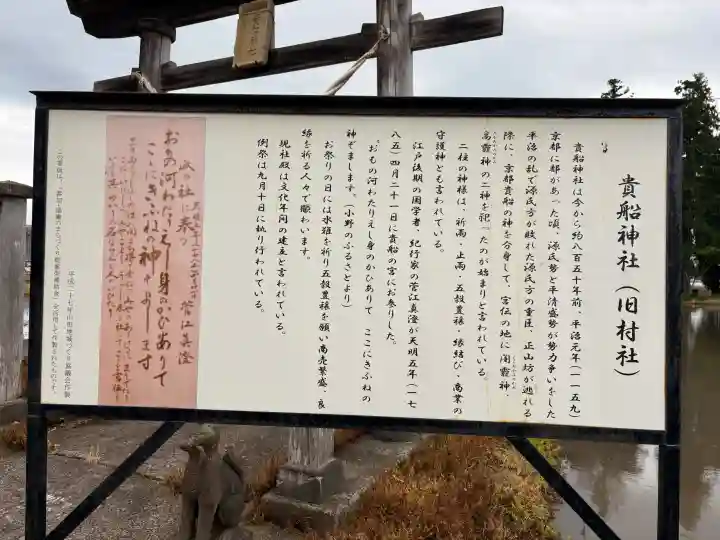 貴船神社（旧村社）
貴船神社は今から約八百五十年前、平治元年（一一五九）
京都に都があった頃、源氏勢と平清盛勢が勢力争いをした
平治の乱で源氏方が敗れた源氏方の重臣、正山坊が逃れる
際に、京都貴船の神を分身して、宮伝の地に闇靇神・
高靇神の二神を祀ったのが始まりと言われている。
二柱の神様は、祈雨・止雨・五穀豊穣・縁結び・商業の
守護神とも言われている。
江戸後期の国学者・紀行家の菅江真澄が天明五年（一七
八五）四月二十一日に貴船の宮にお参りした。
「おもの河わたりえし身のかひありて ここにきふねの
神ぞまします。（小野のふるさとより）
お祭りの日には水難を祈り五穀豊穣を願い商売繁盛・良
縁を祈る人々で賑います。
現社殿は文化年間の建立と言われている。
例祭は九月十日に執り行われている。
此の社に奉る
菅江真澄
おもの河わたりえし身のかひありて
ここにきふねの神ぞまします
平成二十七年山田地域づくり協議会作製